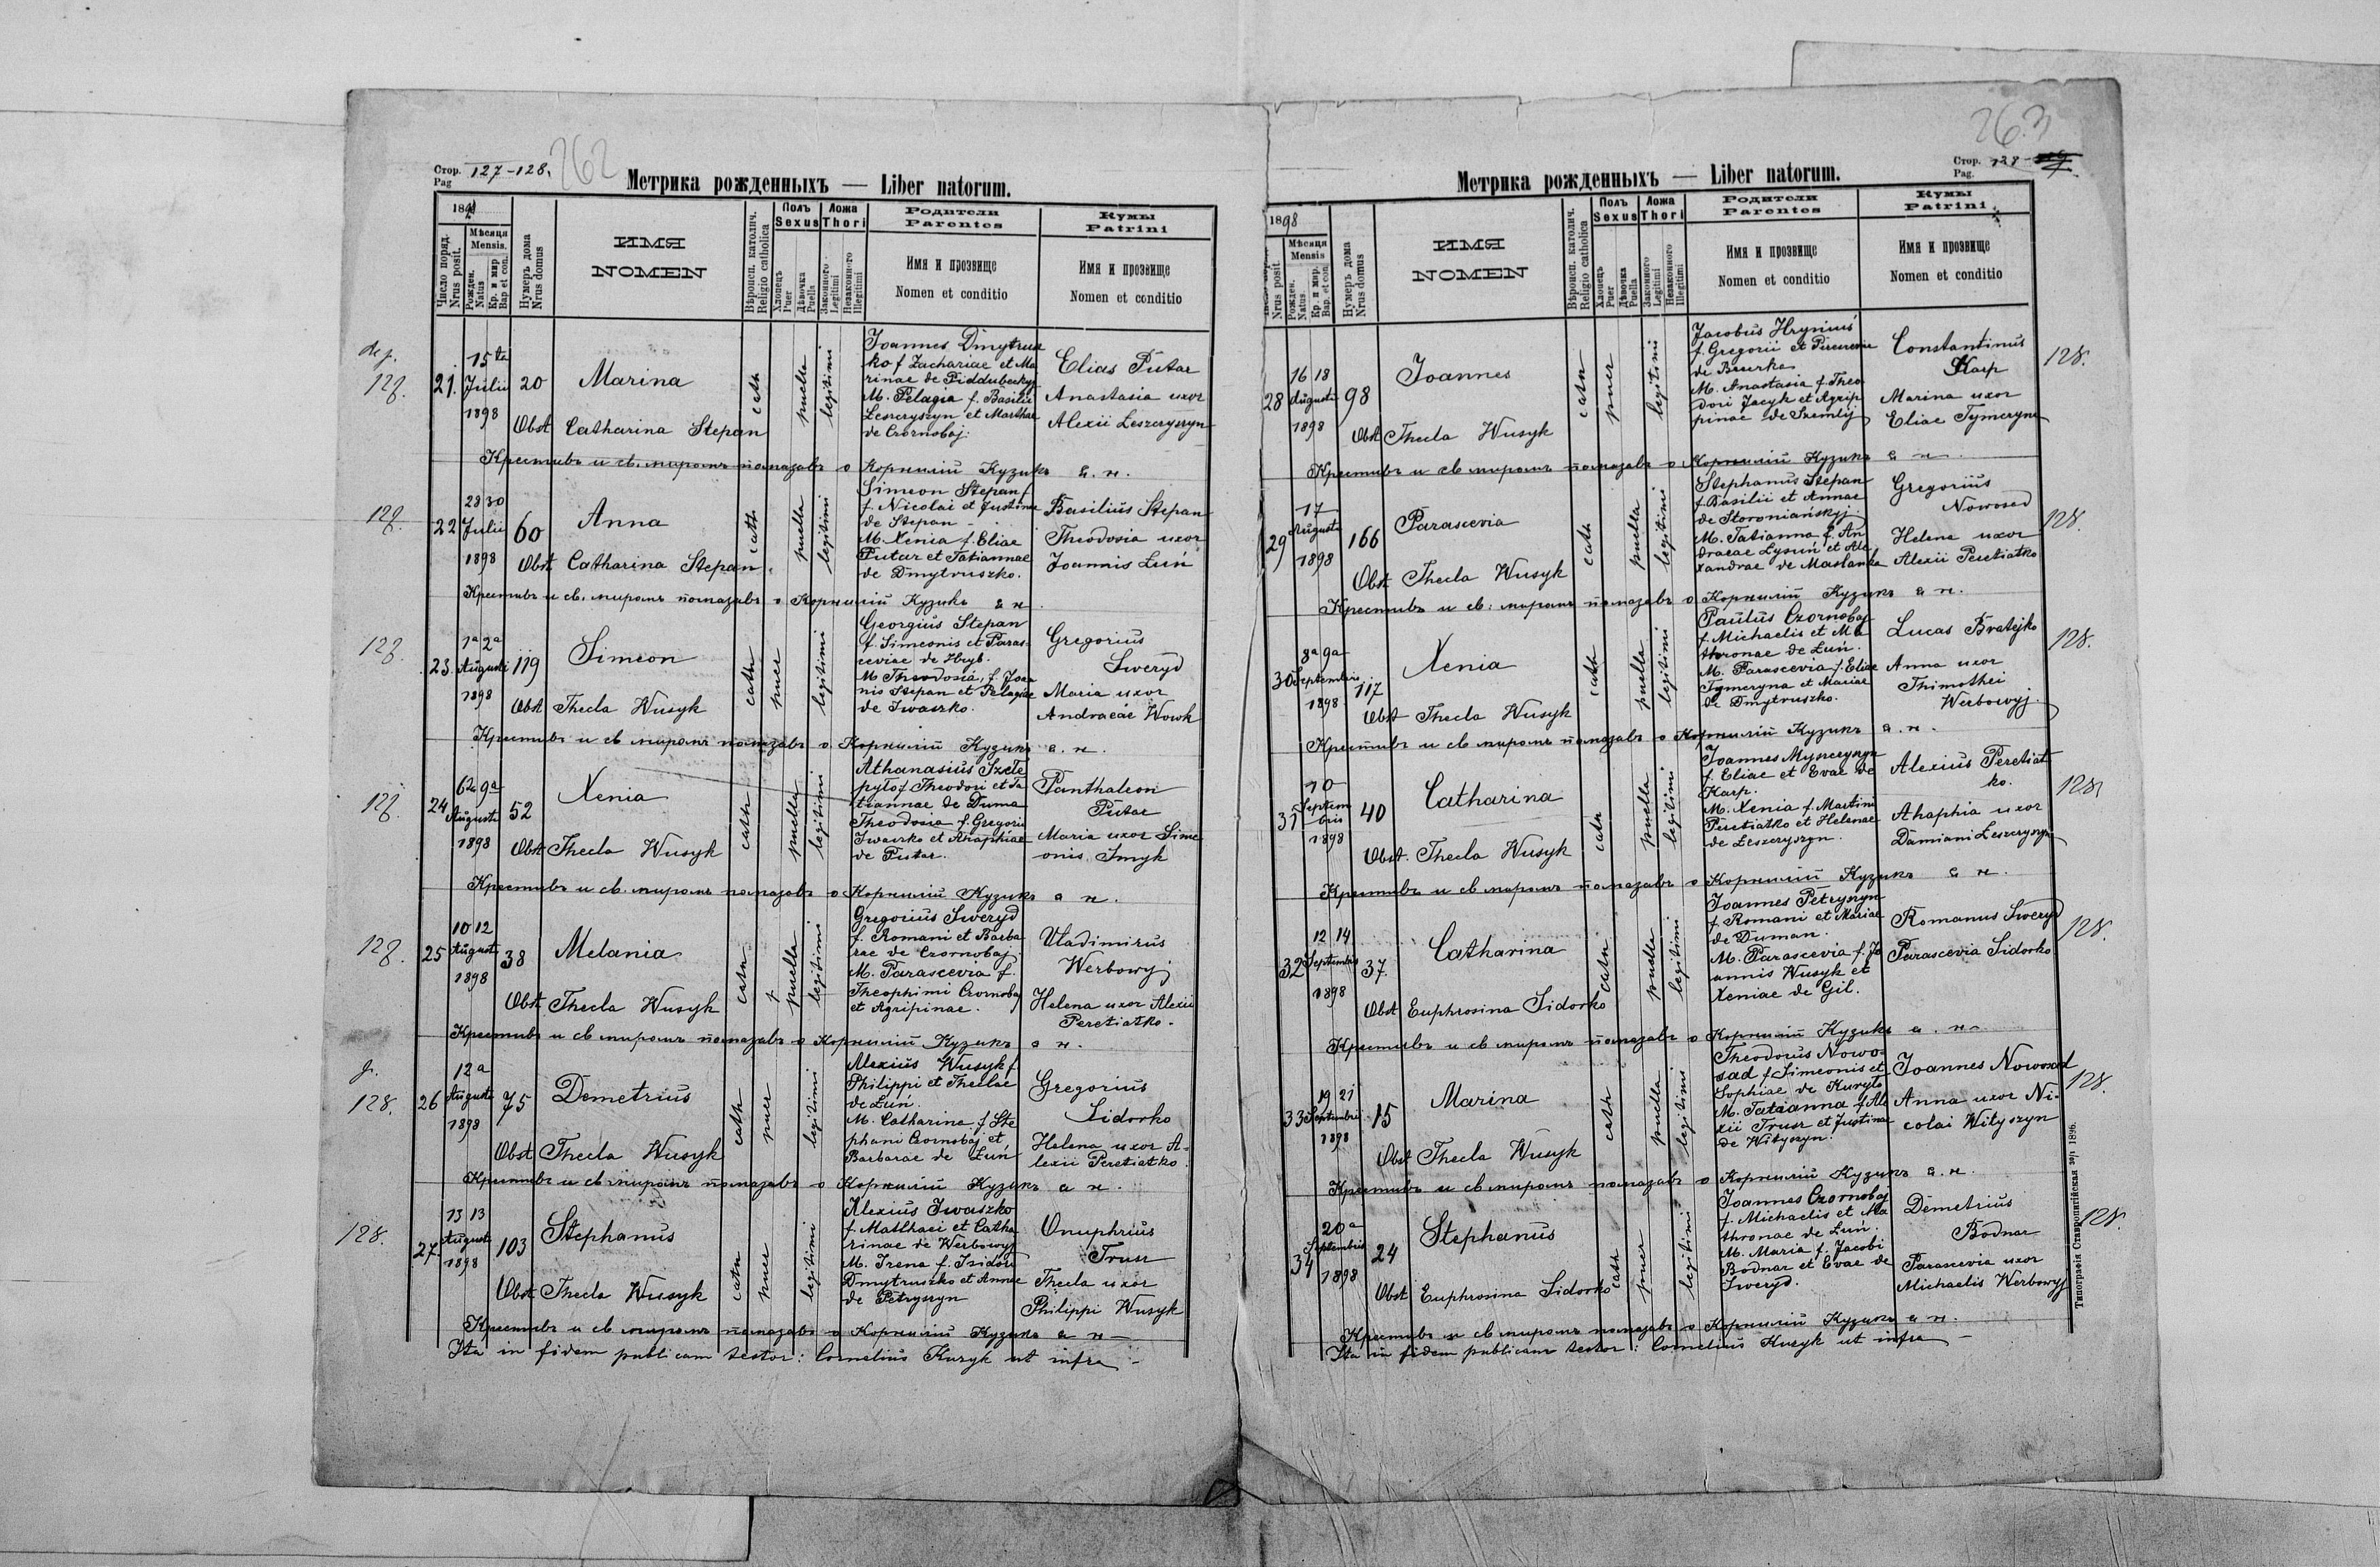 262
Стор. 127-128.
Pag
Метрика рожденныхъ — Liber natorum.
189
Число поряд.
Nrus posit.
Мѣсяця
Mensis.
Рожден.
Natus
Кр. и мир
Bap et con.
Нумеръ дома
Nrus domus
ИМЯ
NOMEN
Вѣроисп. католич.
Religio catholica
Полъ
Sexus
Хлопецъ
Puer
Дѣвочка
Puella
Ложа
Thori
Законного
Legitimi
Незаконного
Illegitimi
Родители
Parentes
Имя и прозвище
Nomen et conditio
Кумы
Patrini
Имя и прозвище
Nomen et conditio
128.
21.
15ta
Julii
1898
20
Marina
Obst Catharina Stepan
cath
puella
legitimi
Joannes Dmytrusz
ko f Zachariae et Ma
rinae de Piddubeckyj
M. Pelagia f. Basilii
Leszczyszyn et Marthae
de Czornobaj.
Elias Putar
Anastasia uxor
Alexii Leszczyszyn
Крестивъ и св. миромъ помазавъ о Корнилій Кузикъ а. н.
128.
22
28 30
Julii
1898
60
Anna
Obst Catharina Stepan.
cath
puella
legitimi
Simeon Stepan f.
f. Nicolai et Justinae
de Stepan
M. Xenia f. Eliae
Putar et Tatiannae
de Dmytruszko.
Basilius Stepan
Theodosia uxor
Joannis Łuń
Крестивъ и св. миромъ помазавъ о Корнилій Кузикъ а н
128.
23.
1a 2a
Augusti
1898
119
Simeon
Obst Thecla Wusyk
cath
puer
legitimi
Georgius Stepan
f. Simeonis et Paras-
ceviae de Hryb.
M Theodosia, f. Joan
nis Stepan et Pelagiae
de Iwaszko.
Gregorius
Sweryd
Maria uxor
Andraeae Wowk
Крестивъ и св миромъ помазавъ о Корнилій Кузикъ а. н.
128.
24
6ta 9a
Augusti
1898
52
Xenia
Obst Thecla Wusyk
cath
puella
legitimi
Athanasius Szele
pyło f Theodori et Ta
tiannae de Duma
Theodosia f. Gregorii
Iwaszko et Ahaphiae
de Putar.
Panthaleon
Putar
Maria uxor Sime
onis Smyk
Крестивъ и св. миромъ помазавъ о Корнилій Кузикъ а н.
128.
25
10 12
Augusti
1898
38
Melania
Obst Thecla Wusyk
cath
puella
legitimi
Gregorius Sweryd
f. Romani et Barba
rae de Czornobaj
M. Parascevia f.
Theophimi Czornobaj
et Agripinae.
Vladimirus
Werbowyj
Helena uxor Alexii
Peretiatko.
Крестивъ и св миромъ помазавъ о Корнилій Кузикъ а н.
128.
26
12a
Augusti
1898
75
Demetrius
Obst Thecla Wusyk
cath
puer
legitimi
Alexius Wusyk f.
Philippi et Theclae
de Łuń.
M. Catharina f. Ste
phani Czornobaj et
Barbarae de Łuń
Gregorius
Sidorko
Helena uxor A-
lexii Peretiatko.
Крестивъ и св миромъ помазавъ о Корнилій Кузикъ а н.
128.
27.
13 13
Augusti
1898
103
Stephanus
Obst Thecla Wusyk
cath
puer
legitimi
Alexius Iwaszko
f. Matthaei et Catha
rinae de Werbowyj
M. Irena f. Isidori
Dmytruszko et Annae
de Petryszyn
Onuphrius
Trusz
Thecla uxor
Philippi Wusyk
Крестивъ и св миромъ помазавъ о Корнилій Кузикъ а н
Ita in fidem publicam testor: Cornelius Kuzyk ut infra
263
Стор. 128-
Pag.
Метрика рожденныхъ — Liber natorum.
1898
Nrus posit.
Мѣсяця
Mensis
Рожден.
Natus
Кр. и мир.
Bap. et con
Нумеръ дома
Nrus domus
ИМЯ
NOMEN
Вѣроисп. католич.
Religio catholica
Полъ
Sexus
Хлопецъ
Puer
Дѣвочка
Puella
Ложа
Thori
Законного
Legitimi
Незаконного
Illegitimi
Родители
Parentes
Имя и прозвище
Nomen et conditio
Кумы
Patrini
Имя и прозвище
Nomen et conditio
28
16 18
Augusti
1898
98
Joannes
Obst Thecla Wusyk
cath
puer
legitimi
Jacobus Hryniuś
f. Gregorii et
de
M. Anastasia f. Theo
dori Jacyk et Agrip
pinae de Szemlij
Constantinus
Karp
Marina uxor
Eliae Tymczyna
128.
Крестивъ и св миромъ помазавъ о Корнилій Кузикъ а н
29
17
Augusti
1898
166
Parascevia
Obst Thecla Wusyk
cath
puella
legitimi
Stephanus Stepan
f. Basilii et Annae
de Storoniańskyj
M. Tatianna f. An
draeae Łysuń et Ale
xandrae de Maslanka
Gregorius
Nowosad
Helena uxor
Alexii Peretiatko
128.
Крестивъ и св: миромъ помазавъ о Корнилій Кузикъ а н.
30
8a 9a
Septembris
1898
117
Xenia
Obst Thecla Wusyk
cath
puella
legitimi
Paulus Czornobaj
f. Michaelis et Ma
thronae de Łuń.
M. Parascevia f. Eliae
Tymczyna et Mariae
de Dmytruszko.
Lucas Bratejko
Anna uxor
Thimothei
Werbowyj.
128.
Крестивъ и св миромъ помазавъ о Корнилій Кузикъ а. н.
31
10
Septem
bris
1898
40
Catharina
Obst. Thecla Wusyk
cath
puella
legitimi
Joannes Myszczyszyn
f. Eliae et Evae de
Karp.
M. Xenia f. Martini
Peretiatko et Helenae
de Leszczyszyn.
Alexius Peretiat
ko.
Ahaphia uxor
Damiani Leszczyszyn
128.
Крестивъ и св миромъ помазавъ о Корнилій Кузикъ а н.
32
12 14
Septembris
1898
37.
Catharina
Obst Euphrosina Sidorko
cath
puella
legitimi
Joannes Petryszyn
f. Romani et Mariae
de Duman.
M. Parascevia f. Jo
annis Wusyk et
Xeniae de Gil.
Romanus Sweryd
Parascevia Sidorko
128.
Крестивъ и св миромъ помазавъ о Корнилій Кузикъ а. н
33
19 21
Septembris
1898
15
Marina
Obst Thecla Wusyk
cath
puella
legitimi
Theodorus Nowo-
sad f. Simeonis et
Sophiae de Kuryło
M. Tatianna f. Ale
xii Trusz et Justinae
de Wityszyn.
Joannes Nowosad
Anna uxor Ni-
colai Wityszyn
128.
Крестивъ и св миромъ помазавъ о Корнилій Кузикъ а. н.
34
20a
Septembris
1898
24
Stephanus
Obst Euphrosina Sidorko
cath
puer
legitimi
Joannes Czornobaj
f. Michaelis et Ma
thronae de Łuń.
M. Maria f. Jacobi
Bodnar et Evae de
Sweryd.
Demetrius
Bodnar
Parascevia uxor
Michaelis Werbowyj
128.
Крестивъ и св миромъ помазавъ о Корнилій Кузикъ а н.
Ita in fidem publicam testor: Cornelius Kuzyk ut infra
Типографія Ставропигійская 1896.